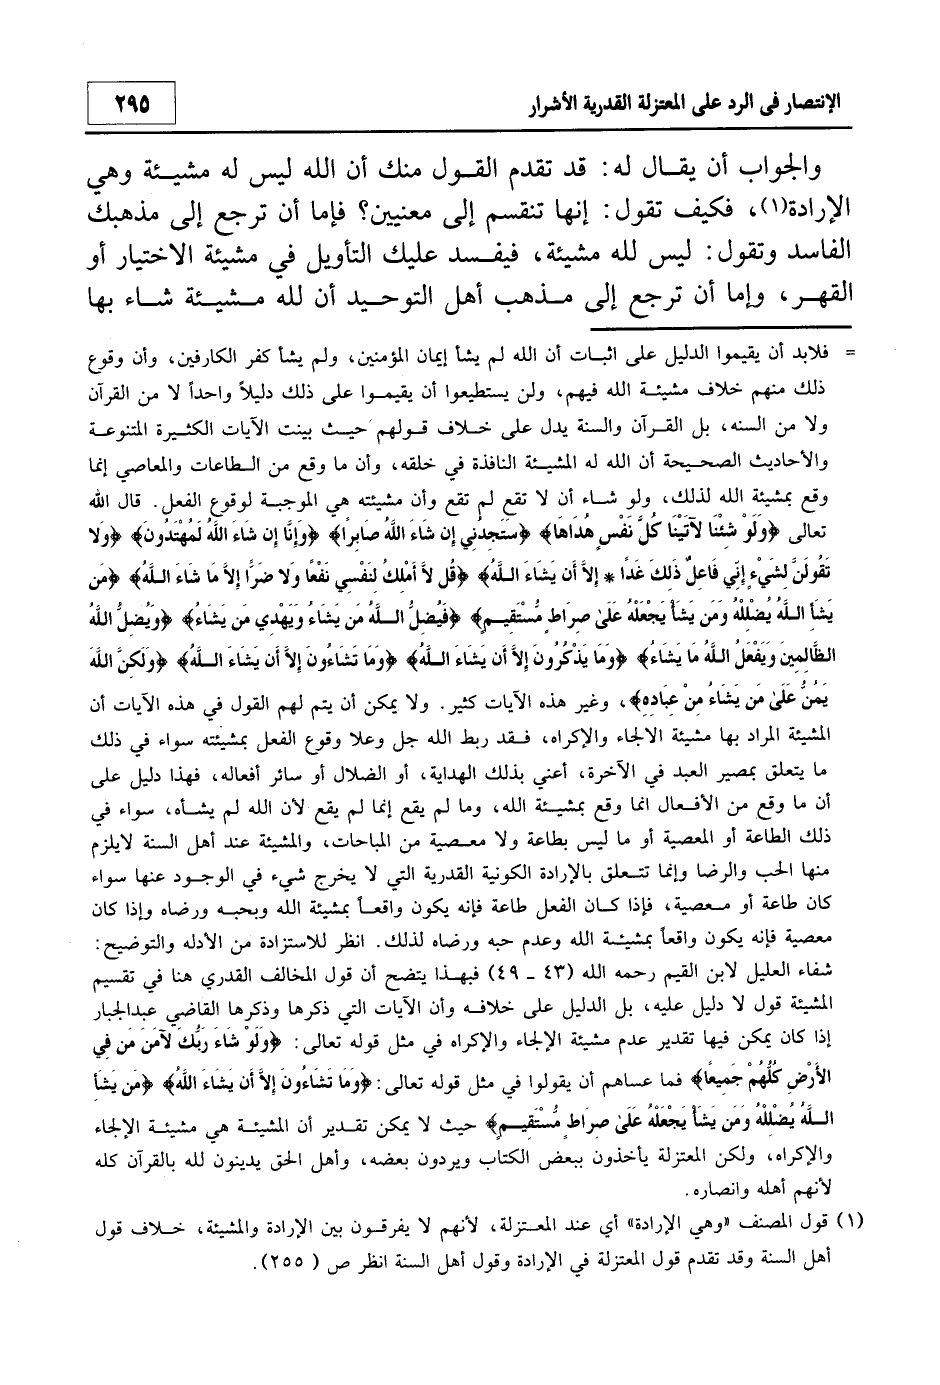 الإنتصار في الرد على المعتزلة القدرية الأشرار
٢٩٥
والجواب أن يقال له: قد تقدم القول منك أن الله ليس له مشيئة وهي
الإرادة(١)، فكيف تقول: إنها تنقسم إلى معنيين؟ فإما أن ترجع إلى مذهبك
الفاسد وتقول: ليس لله مشيئة، فيفسد عليك التأويل في مشيئة الاختيار أو
القهر، وإما أن ترجع إلى مذهب أهل التوحيد أن لله مشيئة شاء بها
= فلابد أن يقيموا الدليل على اثبات أن الله لم يشأ إيمان المؤمنين، ولم يشأ كفر الكارفين، وأن وقوع
ذلك منهم خلاف مشيئة الله فيهم، ولن يستطيعوا أن يقيموا على ذلك دليلاً واحداً لا من القرآن
ولا من السنه، بل القرآن والسنة يدل على خلاف قولهم حيث بينت الآيات الكثيرة المتنوعة
والأحاديث الصحيحة أن الله له المشيئة النافذة في خلقه، وأن ما وقع من الطاعات والمعاصي إنما
وقع بمشيئة الله لذلك، ولو شاء أن لا تقع لم تقع وأن مشيئته هي الموجبة لوقوع الفعل. قال الله
تعالى ﴿وَلَوْ شِئْنَا لآتَيْنَا كُلَّ نَفْسٍ هُدَاهَا﴾ ﴿سَتَجِدُنِي إِن شَاءَ اللَّهُ صَابِراً﴾ ﴿وَإِنَّا إِن شَاءَ اللَّهُ لَمُهْتَدُونَ﴾ ﴿وَلا
تَقُولَنَّ لِشَيْءٍ إِنِّي فَاعِلٌ ذَلِكَ غَدًا * إِلاَّ أَن يَشَاءَ اللَّهُ﴾ ﴿قُل لاَّ أَمْلِكُ لِنَفْسِي نَفْعًا وَلا ضَرًّا إِلاَّ مَا شَاءَ اللَّهُ﴾ ﴿مَن
يَشَأِ اللَّهُ يُضْلِلْهُ وَمَن يَشَأْ يَجْعَلْهُ عَلَىٰ صِرَاطٍ مُّسْتَقِيمٍ﴾ ﴿فَيُضِلُّ اللَّهُ مَن يَشَاءُ وَيَهْدِي مَن يَشَاءُ﴾ ﴿وَيُضِلُّ اللَّهُ
الظَّالِمِينَ وَيَفْعَلُ اللَّهُ مَا يَشَاء﴾ ﴿وَمَا يَذْكُرُونَ إِلاَّ أَن يَشَاءَ اللَّهُ﴾ ﴿وَمَا تَشَاءُونَ إِلاَّ أَن يَشَاءَ اللَّهُ﴾ ﴿وَلَكِنَّ اللَّهَ
يَمُنُّ عَلَىٰ مَن يَشَاءُ مِنْ عِبَادِهِ﴾، وغير هذه الآيات كثير. ولا يمكن أن يتم لهم القول في هذه الآيات أن
المشيئة المراد بها مشيئة الالجاء والإكراه، فقد ربط الله جل وعلا وقوع الفعل بمشيئته سواء في ذلك
ما يتعلق بمصير العبد في الآخرة، أعني بذلك الهداية، أو الضلال أو سائر أفعاله، فهذا دليل على
أن ما وقع من الأفعال انما وقع بمشيئة الله، وما لم يقع إنما لم يقع لأن الله لم يشأه، سواء في
ذلك الطاعة أو المعصية أو ما ليس بطاعة ولا معصية من المباحات، والمشيئة عند أهل السنة لايلزم
منها الحب والرضا وإنما تتعلق بالإرادة الكونية القدرية التي لا يخرج شيء في الوجود عنها سواء
كان طاعة أو معصية، فإذا كان الفعل طاعة فإنه يكون واقعاً بمشيئة الله وبحبه ورضاه وإذا كان
معصية فإنه يكون واقعاً بمشيئة الله وعدم حبه ورضاه لذلك. انظر للاستزادة من الأدله والتوضيح:
شفاء العليل لابن القيم رحمه الله (٤٣ ـ ٤٩) فبهذا يتضح أن قول المخالف القدري هنا في تقسيم
المشيئة قول لا دليل عليه، بل الدليل على خلافه وأن الآيات التي ذكرها وذكرها القاضي عبدالجبار
إذا كان يمكن فيها تقدير عدم مشيئة الإلجاء والإكراه في مثل قوله تعالى: ﴿وَلَوْ شَاءَ رَبُّكَ لآمَنَ مَن فِي
الأَرْضِ كُلُّهُمْ جَمِيعًا﴾ فما عساهم أن يقولوا في مثل قوله تعالى: ﴿وَمَا تَشَاءُونَ إِلاَّ أَن يَشَاءَ اللَّهُ﴾ ﴿مَن يَشَأِ
اللَّهُ يُضْلِلْهُ وَمَن يَشَأْ يَجْعَلْهُ عَلَىٰ صِرَاطٍ مُّسْتَقِيمٍ﴾ حيث لا يمكن تقدير أن المشيئة هي مشيئة الإلجاء
والإكراه، ولكن المعتزلة يأخذون ببعض الكتاب ويردون بعضه، وأهل الحق يدينون لله بالقرآن كله
لأنهم أهله وانصاره.
(١) قول المصنف «وهي الإرادة» أي عند المعتزلة، لأنهم لا يفرقون بين الإرادة والمشيئة، خلاف قول
أهل السنة وقد تقدم قول المعتزلة في الإرادة وقول أهل السنة انظر ص ( ٢٥٥).